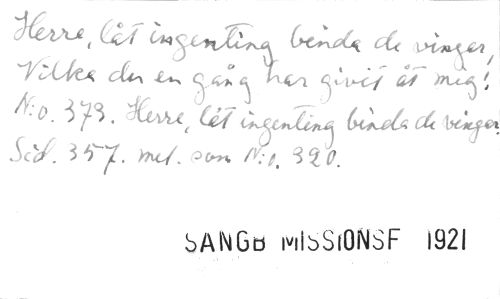 Herre, låt ingenting binda de vingar,
Vilka du en gång har givit åt mig!
N:o. 373. Herre, låt ingenting binda de vingar.
Sid. 357. mel. som N:o. 320.
SANGB MISSIONSF 1921